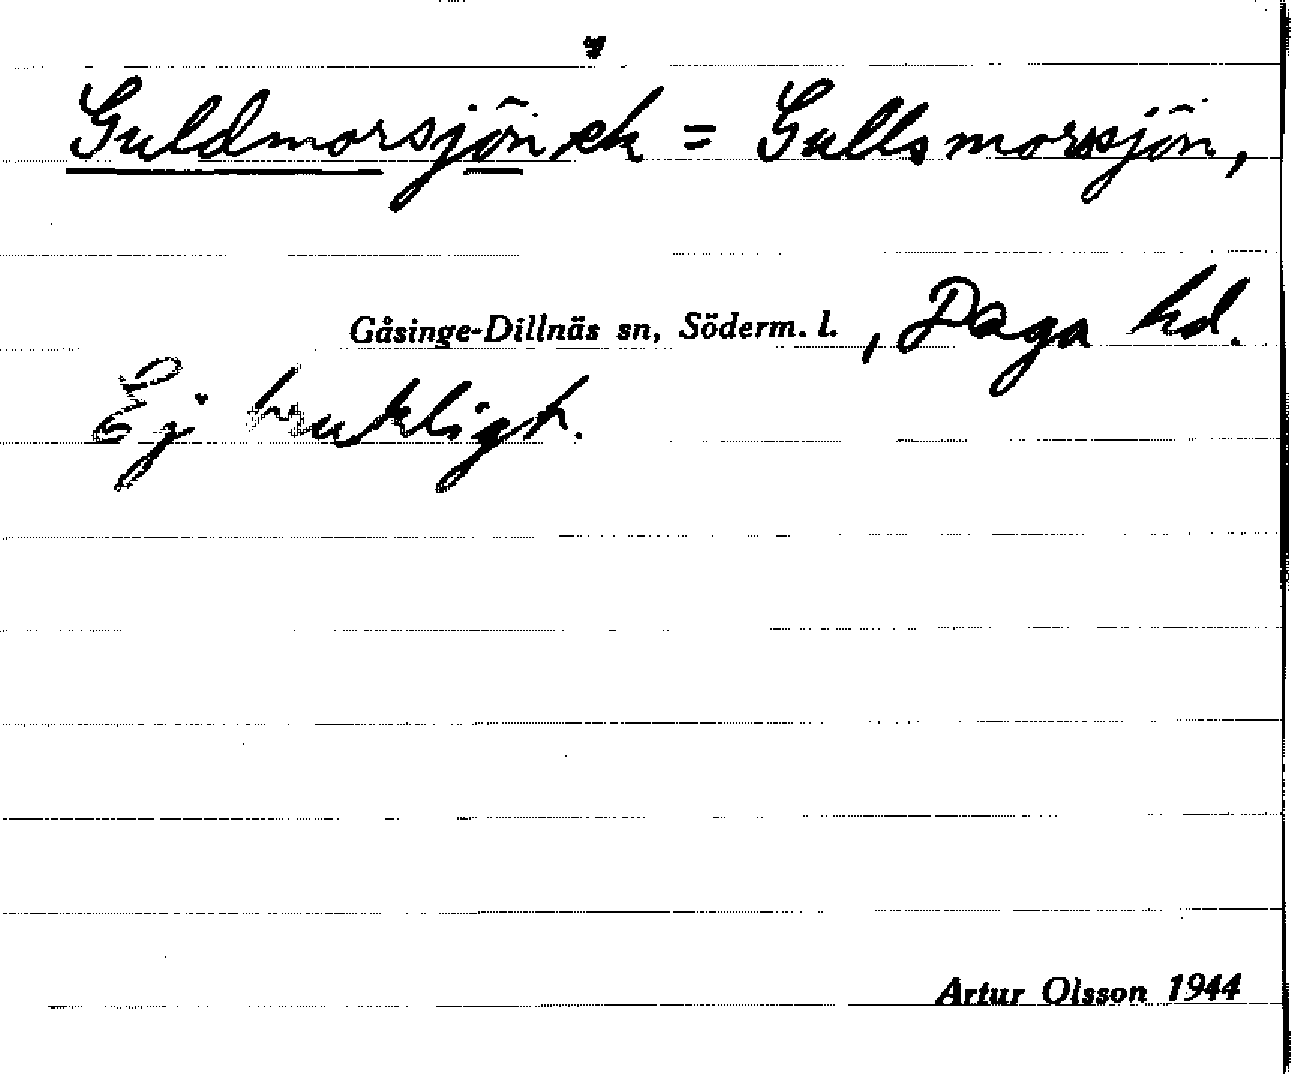 Guldmorsjön ek = Gullsmorsjön,
Gåsinge-Dillnäs sn, Söderm. l., Daga hd.
Ej brukligt.
Artur Olsson 1944